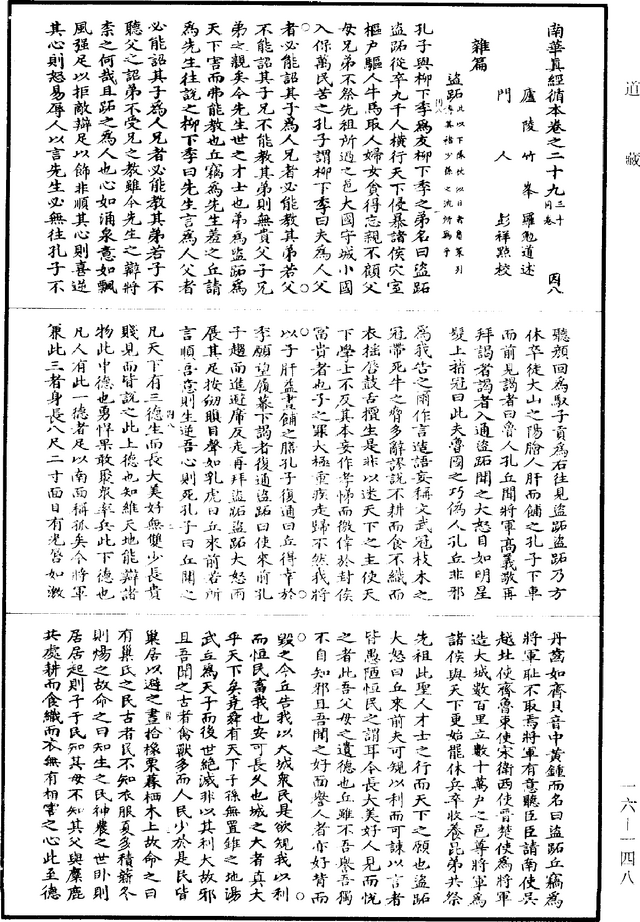 道藏
南華真經循本卷之二十九 三十同卷 因八
廬陵竹峯羅勉道述
門人 彭祥點校
雜篇
盜跖
孔子與柳下季爲友柳下季之弟名曰盜跖
盜跖從卒九千人橫行天下侵暴諸侯穴室
樞戶驅人牛馬取人婦女貪得忘親不顧父
母兄弟不祭先祖所過之邑大國守城小國
入保萬民苦之孔子謂柳下季曰夫爲人父
者必能詔其子爲人兄者必能教其弟若父
不能詔其子兄不能教其弟則無貴父子兄
弟之親矣今先生世之才士也弟爲盜跖爲
天下害而弗能教也丘竊爲先生羞之丘請
爲先生往說之柳下季曰先生言爲人父者
必能詔其子爲人兄者必能教其弟若子不
聽父之詔弟不受兄之教雖今先生之辯將
柰之何哉且跖之爲人也心如涌泉意如飄
風强足以拒敵辯足以飾非順其心則喜逆
其心則怒易辱人以言先生必無往孔子不
聽顔回爲馭子貢爲右往見盜跖盜跖乃方
休卒徒大山之陽膾人肝而餔之孔子下車
而前見謁者曰魯人孔丘聞將軍高義敬再
拜謁者謁者入通盜跖聞之大怒目如明星
髮上指冠曰此夫魯國之巧僞人孔丘非邪
爲我告之爾作言造語妄稱文武冠枝木之
冠帶死牛之脅多辭繆說不耕而食不織而
衣搖脣鼓舌擅生是非以迷天下之主使天
下學士不反其本妄作孝悌而徼倖於封侯
富貴者也子之罪大極重疾走歸不然我將
以子肝益晝餔之膳孔子復通曰丘得幸於
季願望履幕下謁者復通盜跖曰使來前孔
子趨而進避席反走再拜盜跖盜跖大怒兩
展其足按劒瞋目聲如乳虎曰丘來前若所
言順吾意則生逆吾心則死孔子曰丘聞之
凡天下有三德生而長大美好無雙少長貴
賤見而皆說之此上德也知維天地能辯諸
物此中德也勇悍果敢聚衆率兵此下德也
凡人有此一德者足以南面稱孤矣今將軍
兼此三者身長八尺二寸面目有光脣如激
丹齒如齊貝音中黃鍾而名曰盜跖丘竊爲
將軍恥不取焉將軍有意聽臣臣請南使吳
越北使齊魯東使宋衛西使晉楚使爲將軍
造大城數百里立數十萬戶之邑尊將軍爲
諸侯與天下更始罷兵休卒收養昆弟共祭
先祖此聖人才士之行而天下之願也盜跖
大怒曰丘來前夫可規以利而可諫以言者
皆愚陋恒民之謂耳今長大美好人見而悅
之者此吾父母之遺德也丘雖不吾譽吾獨
不自知邪且吾聞之好面譽人者亦好背而
毀之今丘告我以大城衆民是欲規我以利
而恒民畜我也安可長久也城之大者莫大
乎天下矣堯舜有天下子孫無置錐之地湯
武立爲天子而後世絶滅非以其利大故邪
且吾聞之古者禽獸多而人民少於是民皆
巢居以避之晝拾橡栗暮栖木上故命之曰
有巢氏之民古者民不知衣服夏多積薪冬
則煬之故命之曰知生之民神農之世卧則
居居起則于于民知其母不知其父與麋鹿
共處耕而食織而衣無有相害之心此至德
一六—一四八